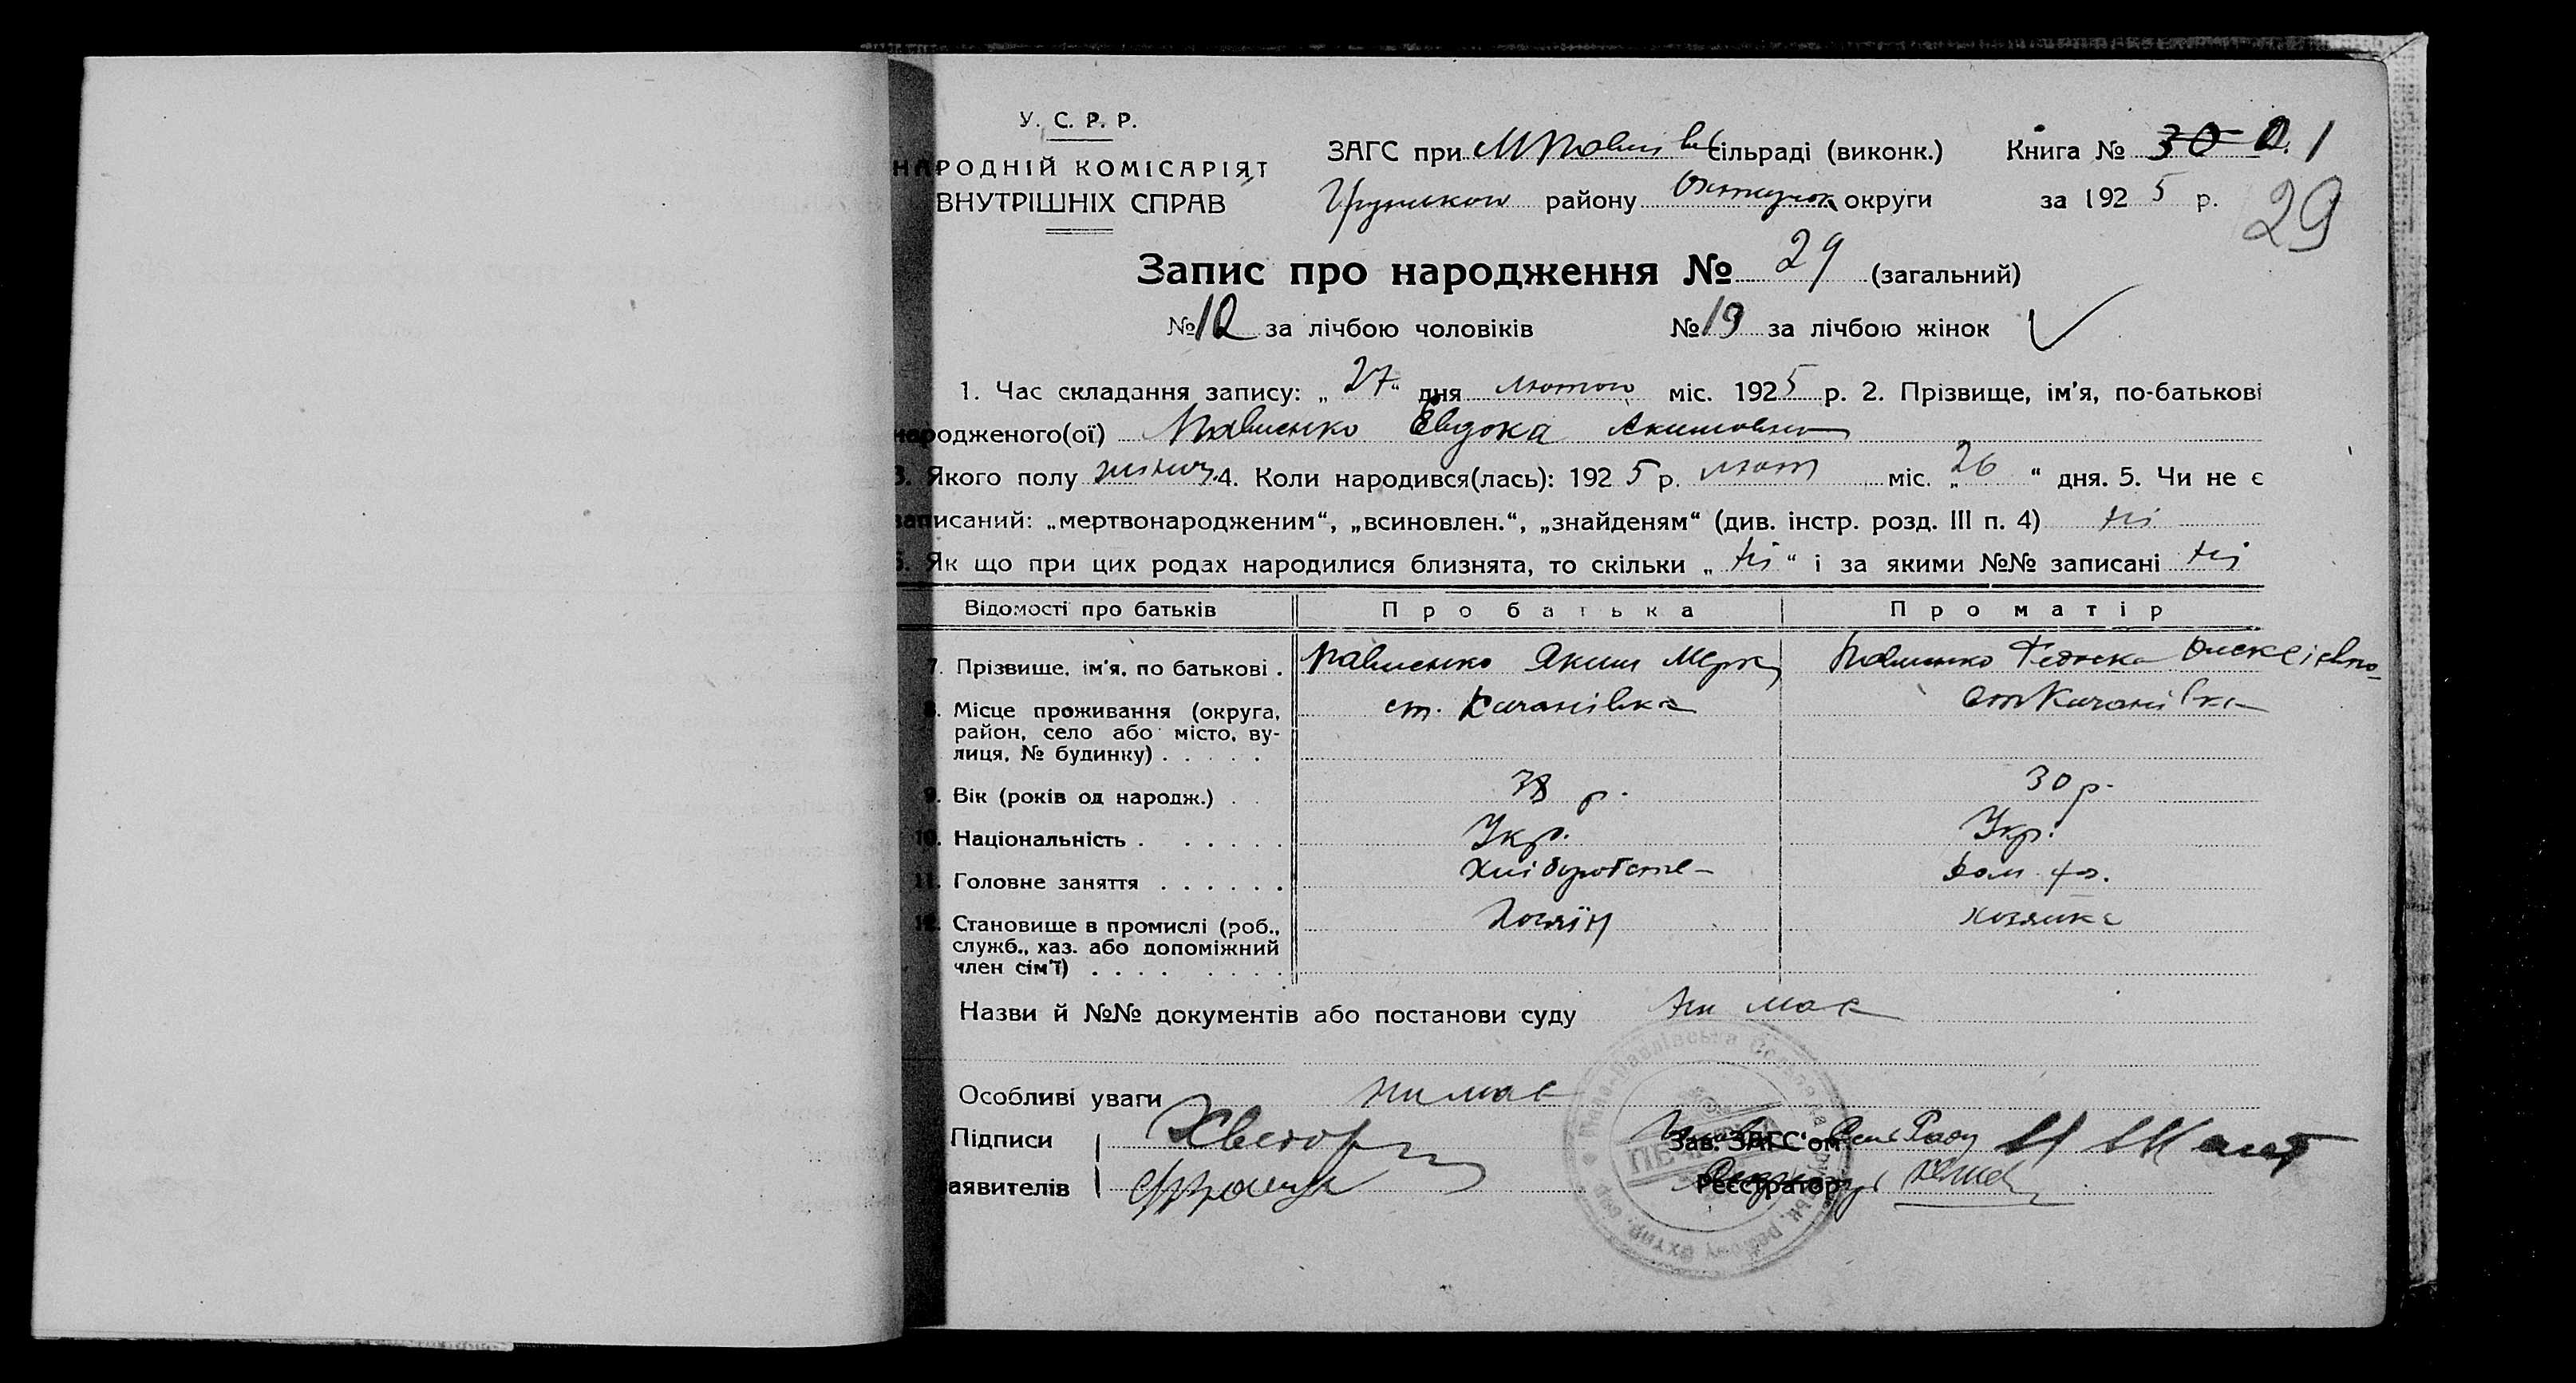 У. С. Р. Р.
НАРОДНІЙ КОМІСАРІЯТ
ВНУТРІШНІХ СПРАВ
ЗАГС при М Павлівс сільраді (виконк.) Книга № 1
району округи за 1925 р.
29
Запис про народження № 29 (загальний)
№ 10 за лічбою чоловіків № 19 за лічбою жінок
1. Час складання запису: „27“ дня лютого міс. 1925 р. 2. Прізвище, ім'я, по-батькові
народженого(ої) Павленко Євдока Акимовна
3. Якого полу жіноч. 4. Коли народився(лась): 1925 р. лют міс. „26“ дня. 5. Чи не є
записаний: „мертвонародженим“, „всиновлен.“, „знайденям“ (див. інстр. розд. III п. 4) ні
6. Як що при цих родах народилися близнята, то скільки „ні“ і за якими №№ записані ні
Відомості про батьків Про батька Про матір
7. Прізвище, ім'я, по батькові . Павленко Яким Павленко Федоска Олексієвна
8. Місце проживання (округа, ст. Качанівка ст Качанівка
район, село або місто, ву-
лиця, № будинку) . . . . .
9. Вік (років од народж.) . . 38 р. 30 р.
10. Національність . . . . . . Укр. Укр.
11. Головне заняття . . . . . . Хліборобств Дом
12. Становище в промислі (роб., Хозяїн хозяйка
служб., хаз. або допоміжний
член сім'ї) . . . . . . . .
Назви й №№ документів або постанови суду ни має
Особливі уваги нимає
Підписи Зав. ЗАГС'ом
Заявителів Реєстратор